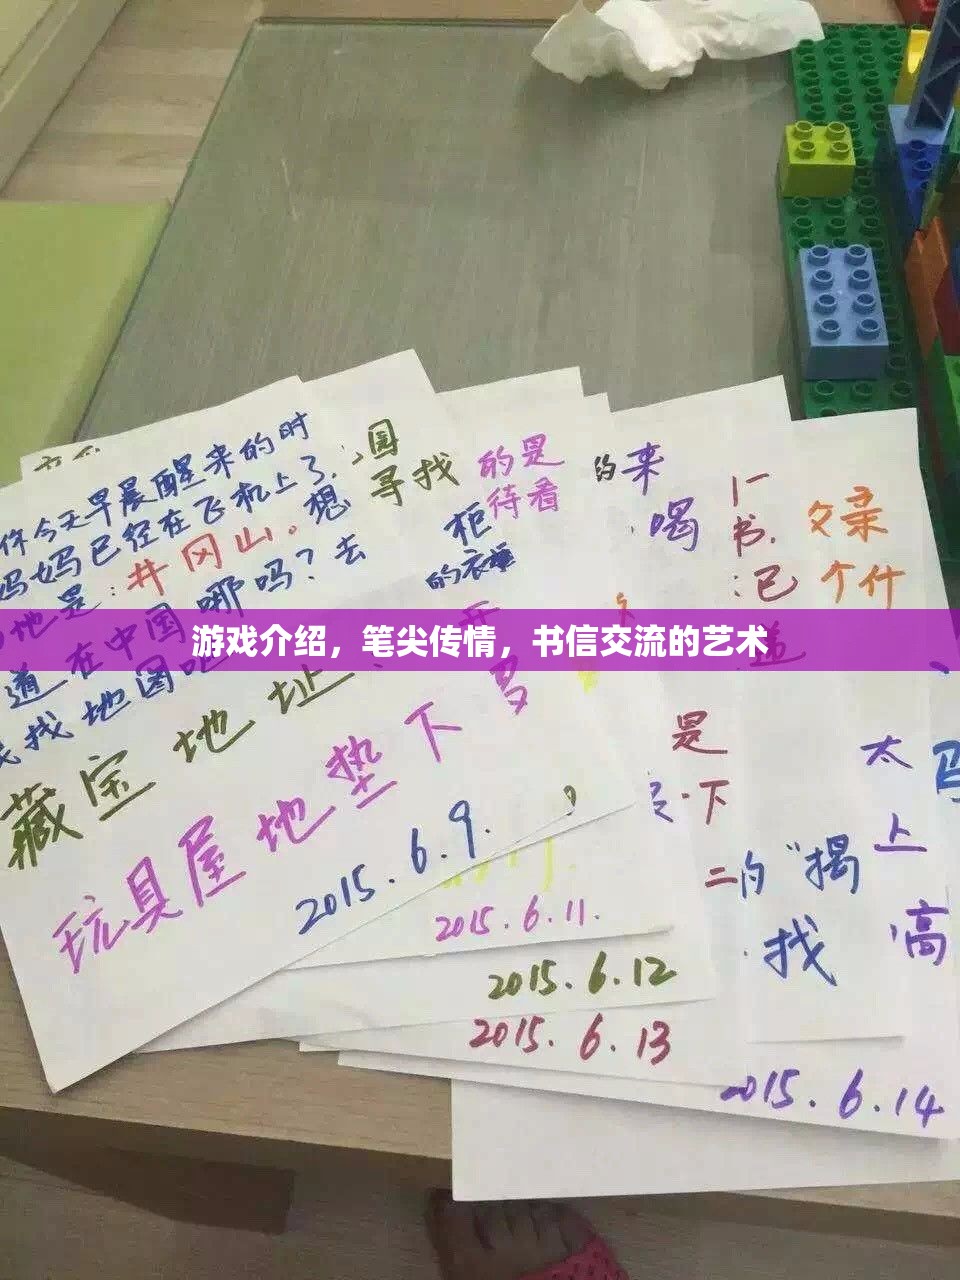 你今天早晨醒来的时
妈妈已经在飞机上了.
地是:井冈山。想
道在中国哪吗?去
找找地图吧
藏宝地址:
玩具屋地垫下
2015.6.9.
国
寻找
的是
待看
柜
的衣
2015.6.11.
2015.6.12
的来
喝
书.
:已
是
下
2015.6.13
文亲
个什
游戏介绍，笔尖传情，书信交流的艺术
太
上
的"揭
找
高
2015.6.14